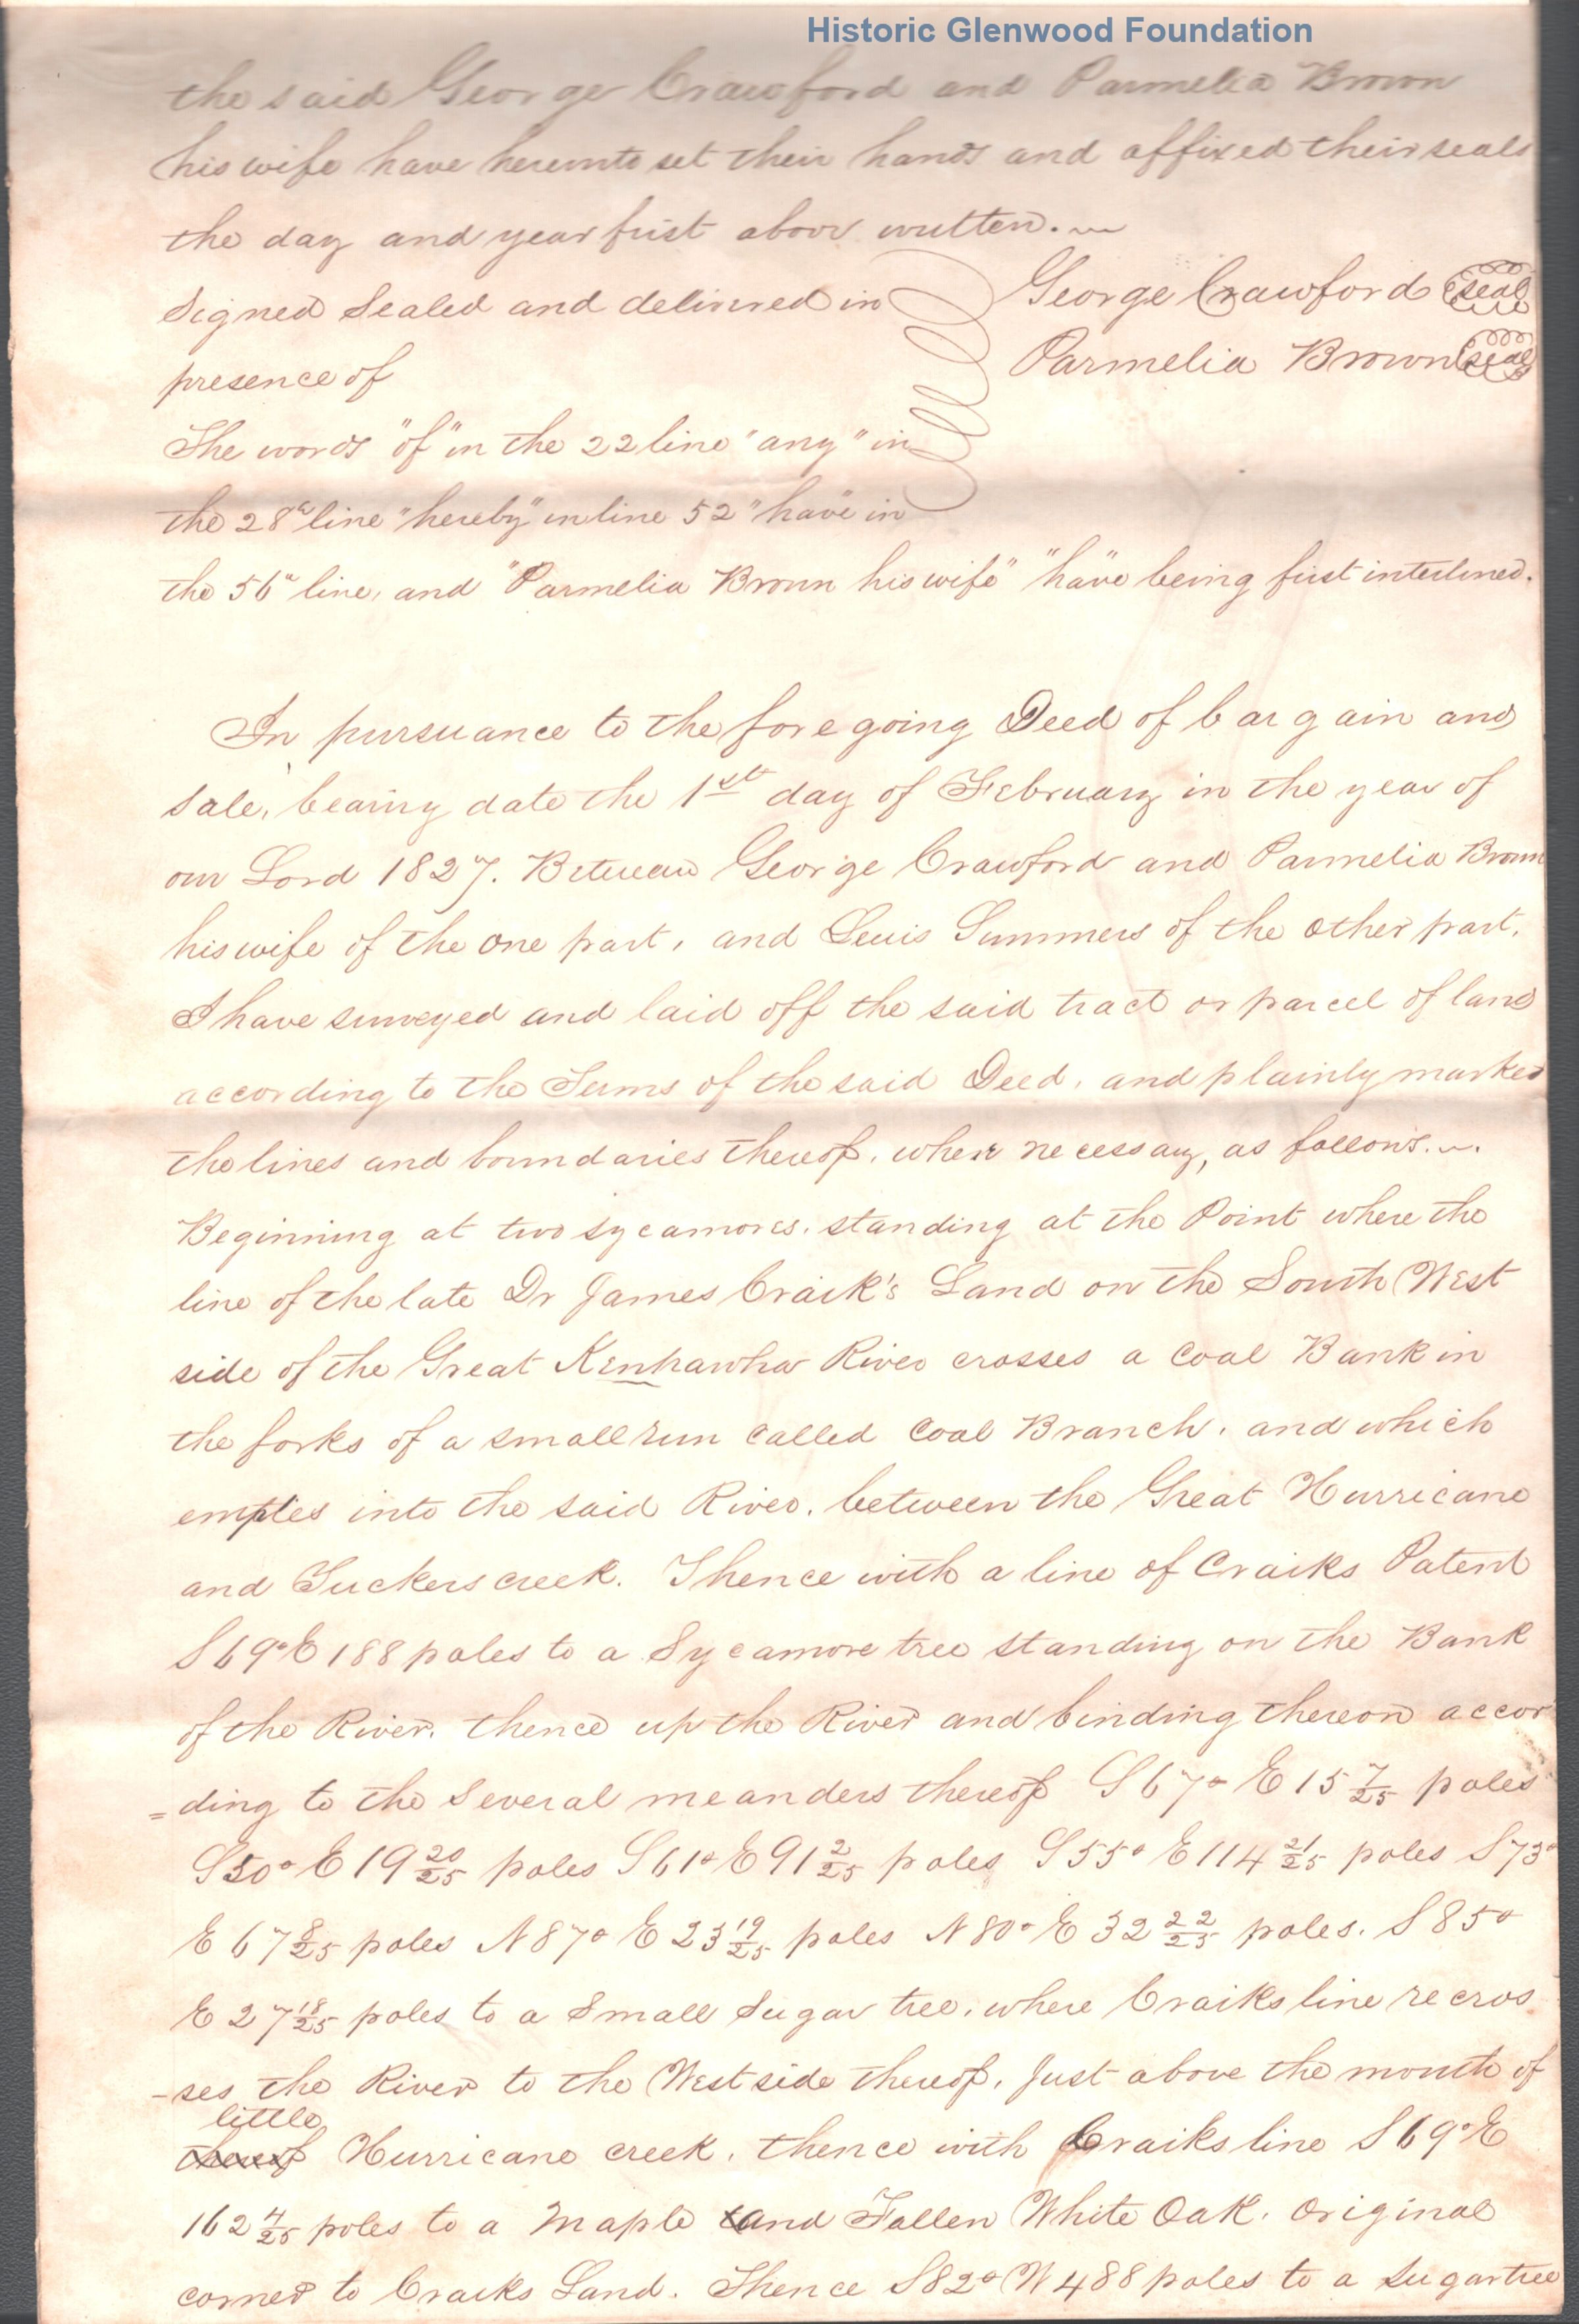 Historic Glenwood Foundation
the said George Crawford and Parmelia Brown
his wife have hereunto set their hands and affixed their seals
the day and year first above written.
Signed Sealed and delivered in
George Crawford seal
presence of
Parmelia Brown seal
The words "of" in the 22 line "any" in
the 28th line "hereby" in line 52 "have" in
the 56th line, and "Parmelia Brown his wife" "have" being first interlined.
In pursuance to the foregoing Deed of bargain and
sale, bearing date the 1st day of February in the year of
our Lord 1827. Between George Crawford and Parmelia Brown
his wife of the one part, and Lewis Summers of the other part.
I have surveyed and laid off the said tract or parcel of land
according to the Terms of the said Deed, and plainly marked
the lines and boundaries thereof, where necessary, as follows.
Beginning at two sycamores, standing at the Point where the
line of the late Dr James Craik's Land on the South West
side of the Great Kenhawha River crosses a Coal Bank in
the forks of a small run called Coal Branch, and which
empties into the said River, between the Great Hurricane
and Tuckers creek. Thence with a line of Craiks Patent
S 69° E 188 poles to a Sycamore tree standing on the Bank
of the River, thence up the River and binding thereon accor
=ding to the several meanders thereof S 67° E 15 7/25 poles
S 50° E 19 20/25 poles S 61° E 91 2/25 poles S 55° E 114 21/25 poles S 73°
E 67 8/25 poles N 87° E 23 19/25 poles N 80° E 32 22/25 poles. S 85°
E 27 18/25 poles to a Small Sugar tree, where Craiks line recros
-ses the River to the West side thereof, Just above the mouth of
little
thereof Hurricane creek, thence with Craiks line S 69° E
162 4/25 poles to a Maple and Fallen White Oak, Original
corner to Craiks Land. Thence S 82° W 488 poles to a Sugartree